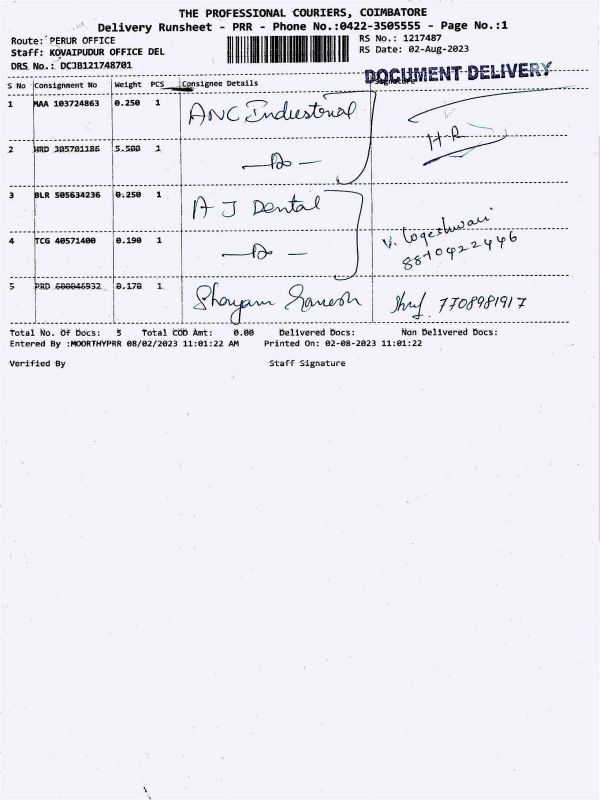 THE PROFESSIONAL COURIERS, COIMBATORE
Delivery Runsheet - PRR - Phone No.:0422-3505555 - Page No.:1
Route: PERUR OFFICE
RS No.: 1217487
Staff: KOVAIPUDUR OFFICE DEL
RS Date: 02-Aug-2023
DRS No.: DCJB121748701
DOCUMENT DELIVERY
S No Consignment No Weight PCS Consignee Details Signature
1 MAA 103724863 0.250 1 ANC Industrial
H.R
2 HRD 305701186 5.500 1 — Do —
3 BLR 505634236 0.250 1 A J Dental
V. Logeshwari
4 TCG 40571400 0.190 1 — Do — 8870422446
5 PRD 600046932 0.170 1 Shayam Ganesh 7708981917
Total No. Of Docs: 5 Total COD Amt: 0.00 Delivered Docs: Non Delivered Docs:
Entered By :MOORTHYPRR 08/02/2023 11:01:22 AM Printed On: 02-08-2023 11:01:22
Verified By Staff Signature